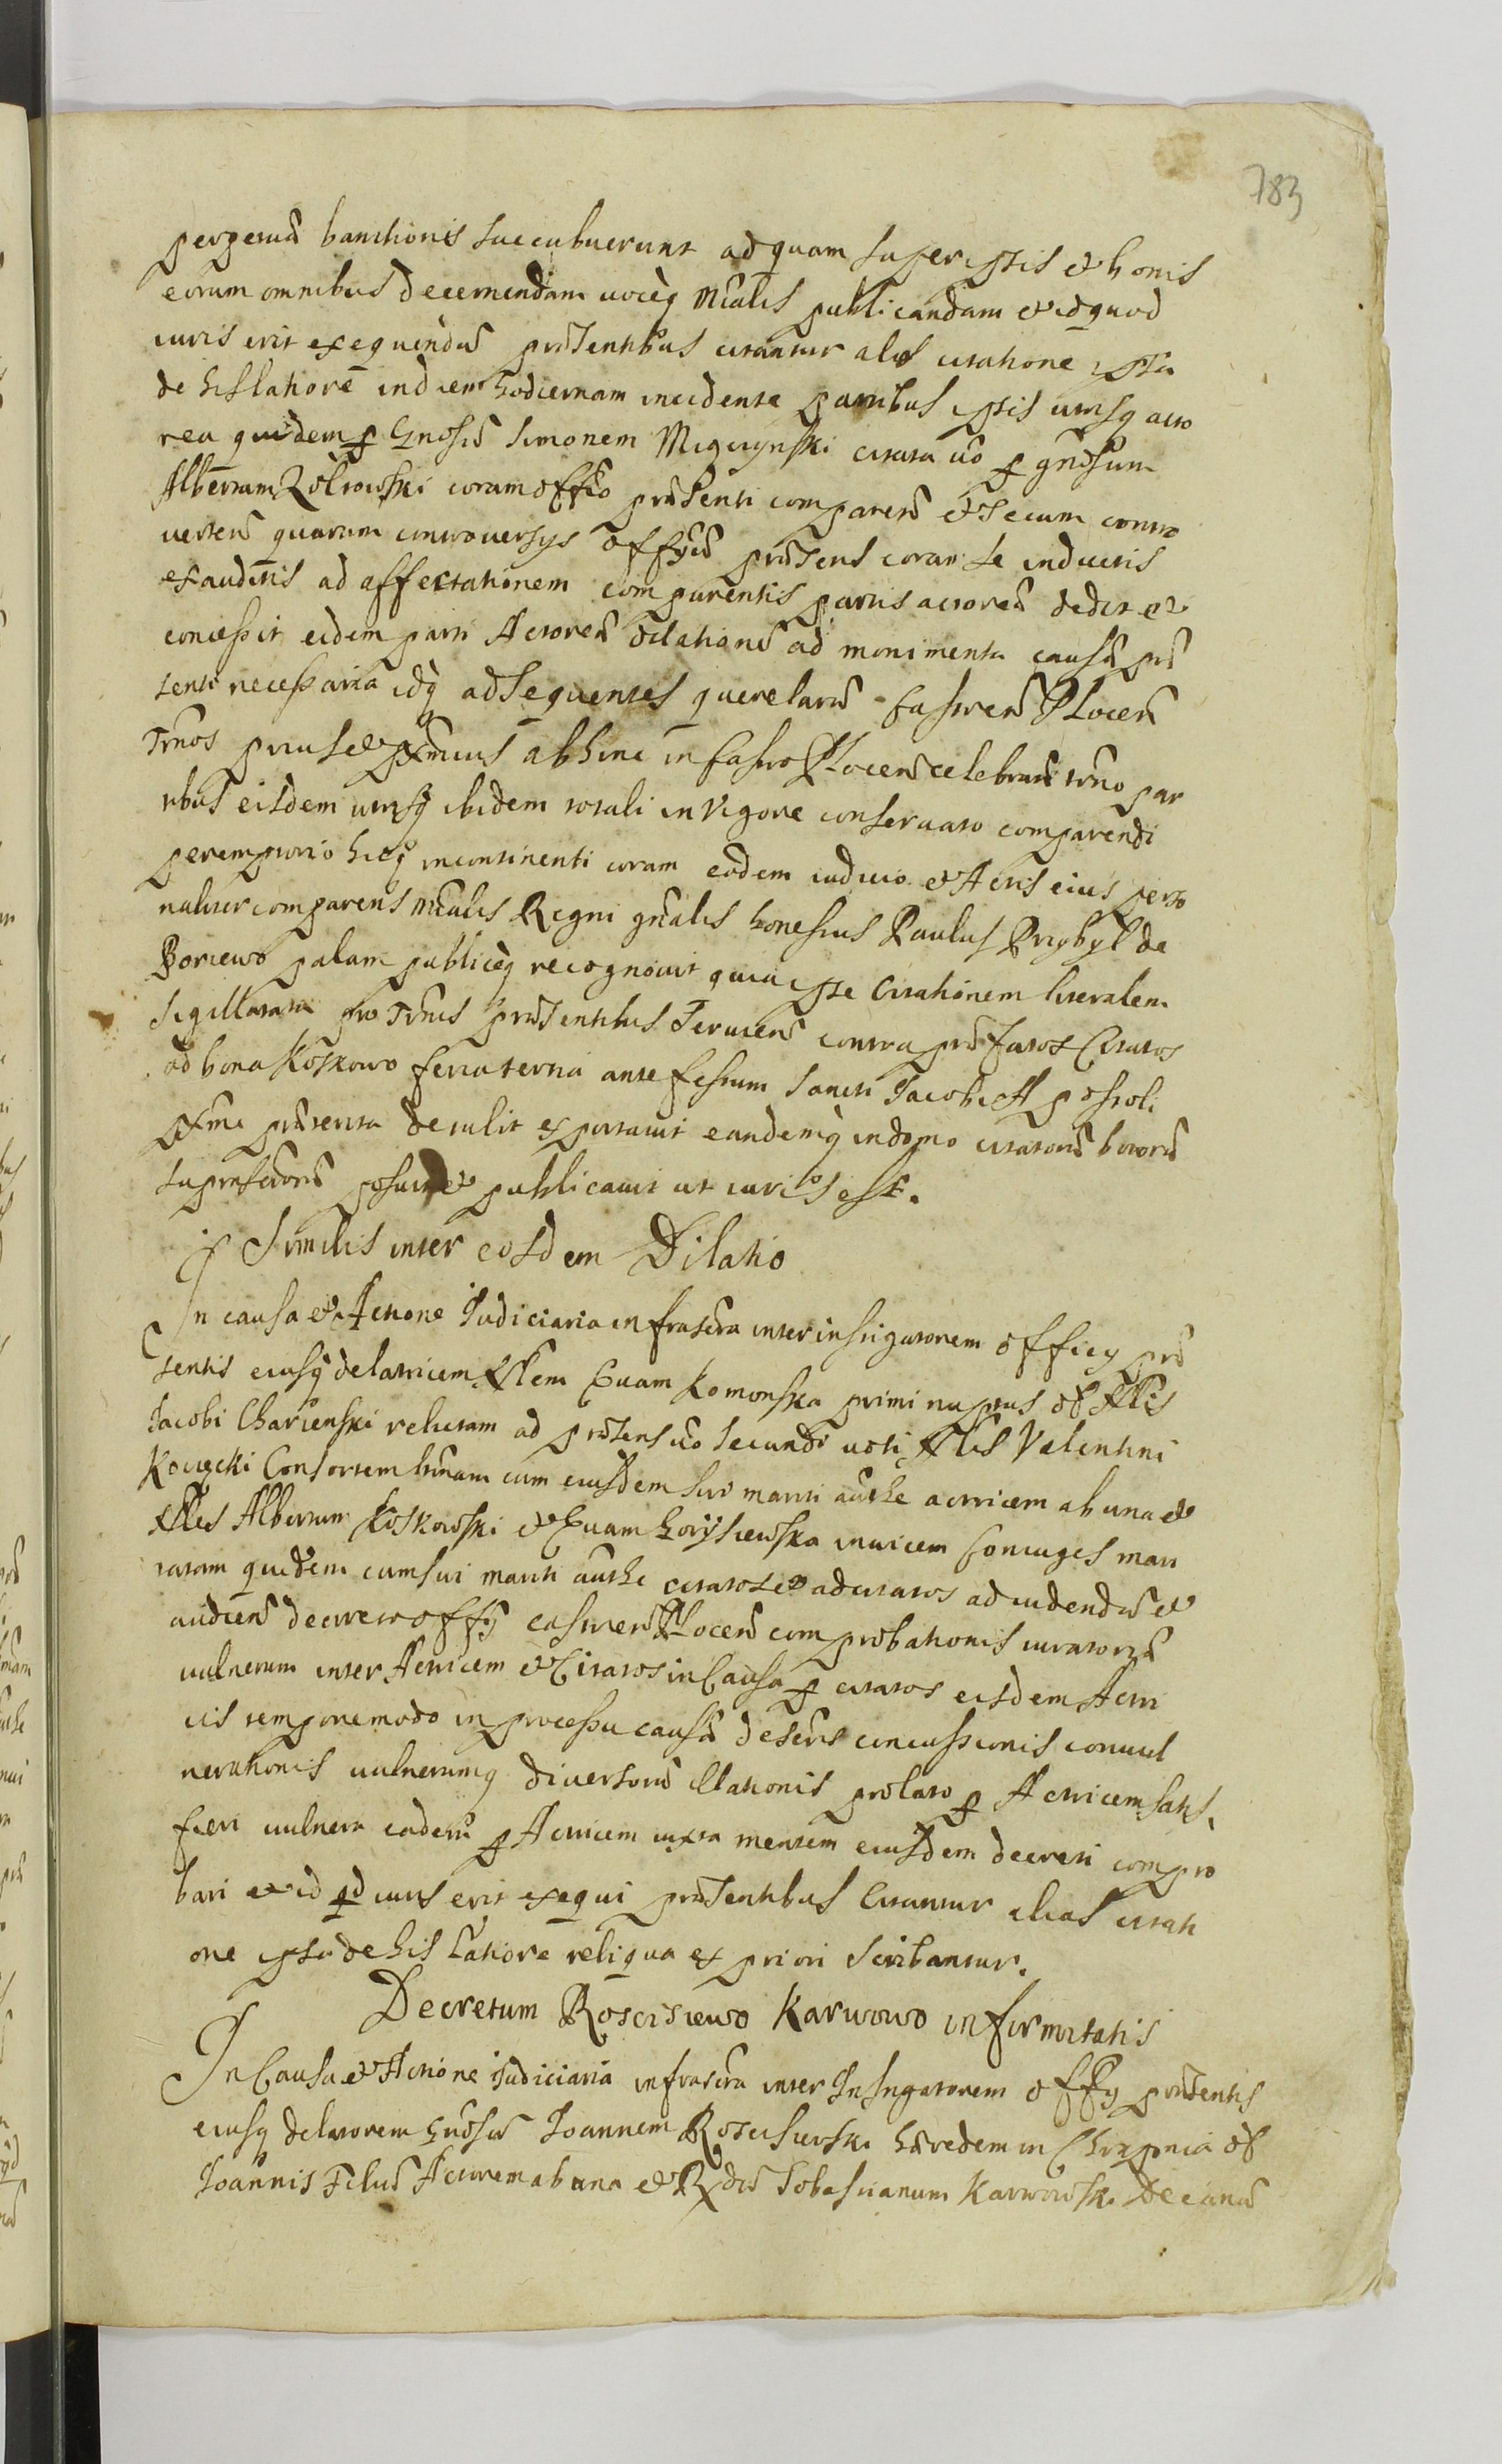 783
perpetuæ bannitionis succubuerunt ad quam super ipsis et bonis
eorum omnibus decernendam uoceq Mrialis publicandam et id quod
iuris erit exequendū præsentibus citantur alias citatione ipsa
de his latiore in diem hodiernam incidente partibus ipsis utrisq acto
rea quidem p Gnosū Simonem Mięczynski citata uo p gnosum
Albertum Zołtowski coram offo præsenti comparen et secum contro
uerten quarum controuersys offm præsens coram se inductis
exauditis ad affectationem comparentis partis actoreæ dedit et
concessit eidem parti Actoreæ dilationē ad monimenta causæ præ
senti necessaria idq ad sequentes querelarū Castren Plocen
Trnos prius et pxmius abhinc in Castro Plocen celebran trno par
tibus eisdem utrisq ibidem totali in vigore conseruato comparendi
peremptorio hicq incontinenti coram eodem iudicio et Actis eius perso
naliter comparens Mrialis Regni gnralis honestus Paulus Przybył de
Boricewo palam publiceq recognouit quia ipse Citationem literalem
sigillatam pro Trnis præsentibus seruien contra præfatos Citatos
ad bona Koskowo feria tertia ante festum Sancti Jacobi Apostoli
pxme præterita detulit exportauit eandemq in domo citatorū bonorū
supradictorū posuit et publicauit ut iuris est.
Similis inter eosdem Dilatio
In causa et Actione Iudiciaria infrascra inter instigatorem officy præ
sentis eiusq delatricem Nblem Euam Komonska primi nuptus olim Nblis
Jacobi Charienski relictam ad præsens uo secundi uoti Nblis Valentini
Kouęcki Consortem lrtimam cum eiusdem sui mariti authe actricem ab una et
Nbles Albertum Koskowski et Euam Gorzysiewska inuicem Coniuges mari
tatam quidem cum sui mariti authe citatos et adcitatos ad uidendū et
audien decreto offy castren Plocen comprobationis iuratoriæ
uulnerum inter Actricem et Citatos in Causa p citatos eisdem Actri
cis tempore modo in processu causæ descris concussionis conuul
nerationis uulnerumq diuersorū illationis prolato p Actricem satis
fieri uulnera eadem p Actricem iuxta mentem eiusdem decreti compro
bari et id qd iuris erit exequi præsentibus Citantur alias citati
one ipsa de his latiore reliqua ex priori scribantur.
Decretum Roscisiewo Karwowo infirmitatis
In Causa et Actione iudiciaria infrascra inter Instigatorem offy præsentis
eiusq delatorem Gnosū Joannem Roscisiewski hæredem in Chrzponia olim
Joannis Filiū Actorem ab una et Rxdū Sobastianum Karwowski Decanū